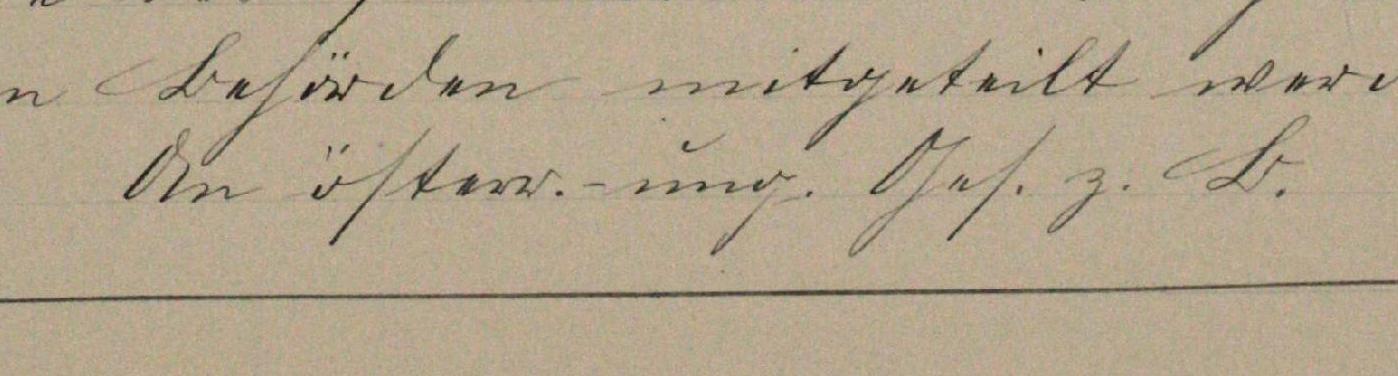 n Behörden mitgeteilt werd
An österr.-ung. Ges. z. B.